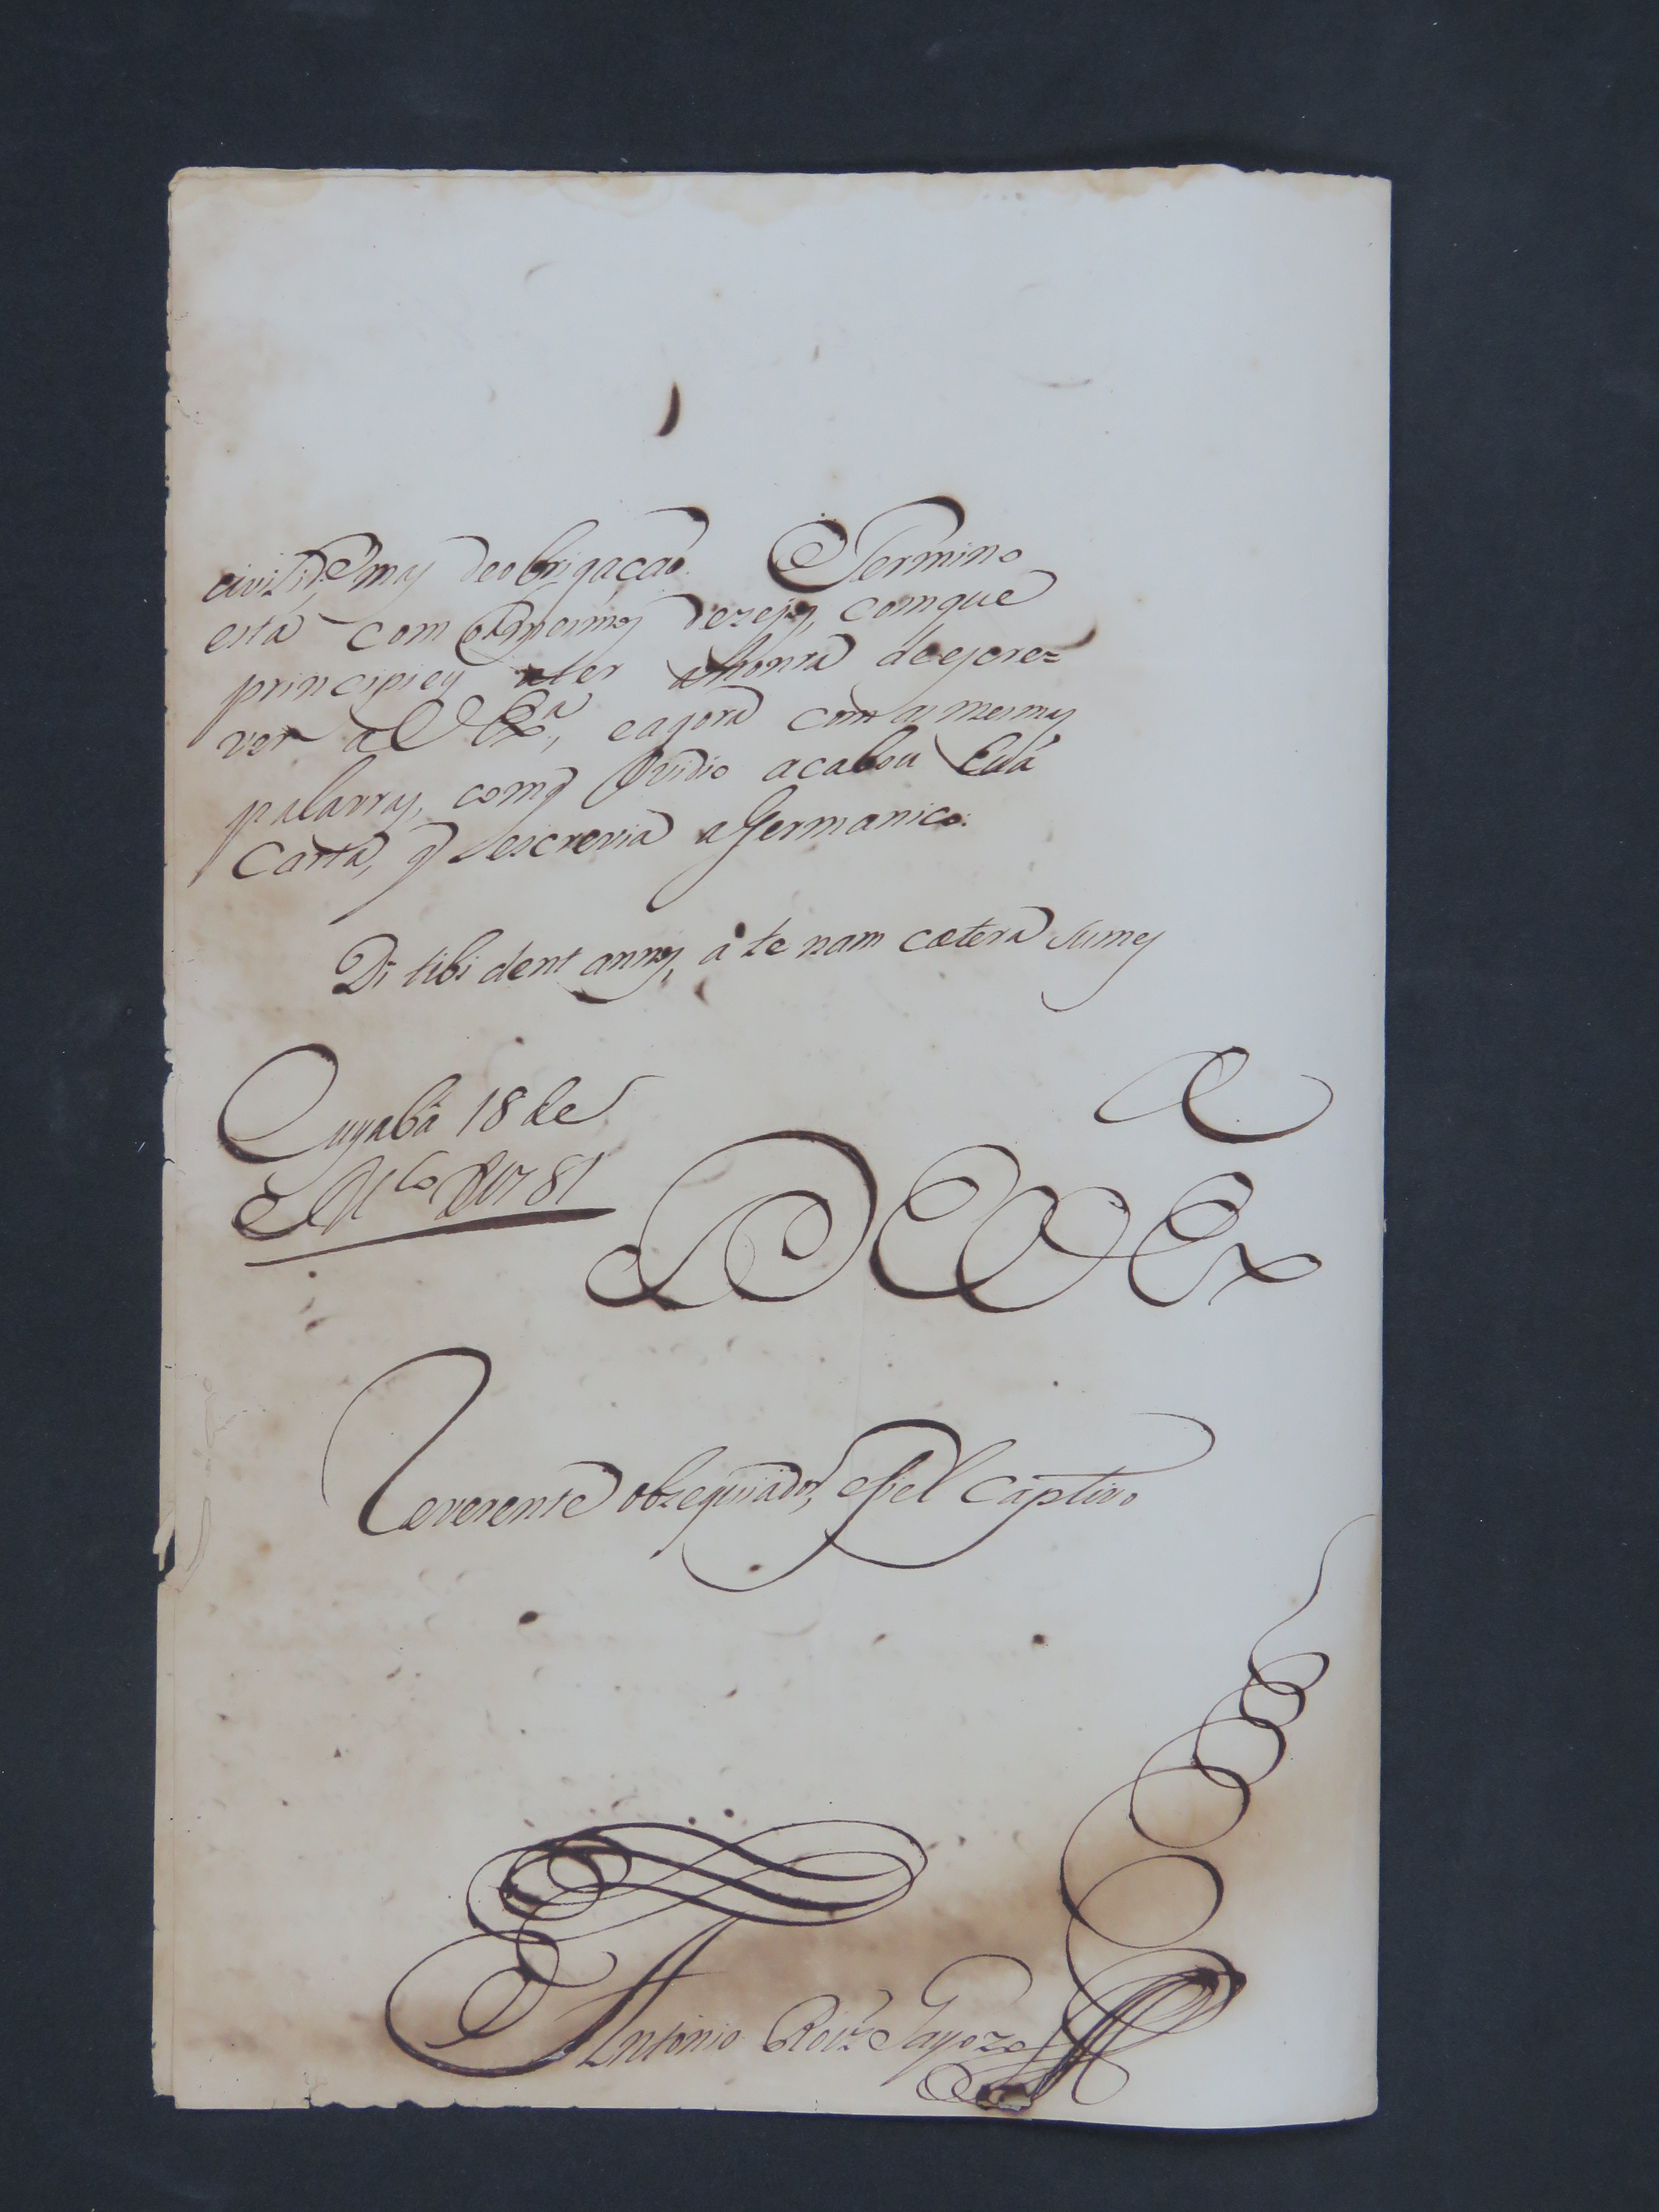 civilid.e, mas deobrigaçaõ. Termino
esta com os mesmos dezejos, comque
principiey ater ahonra deescre=
ver a V Ex.a, eagora com as mesmas
palavras, comq Ovidio acabou
Carta, q escrevia aGermanico.
Di tibi dent annos, à te nam cætera sumes
Cuyabá 18 de
M.ço de 1781
De V Ex.a
Reverente obzequiador, efiel captivo
Antonio Roiz Gayozo